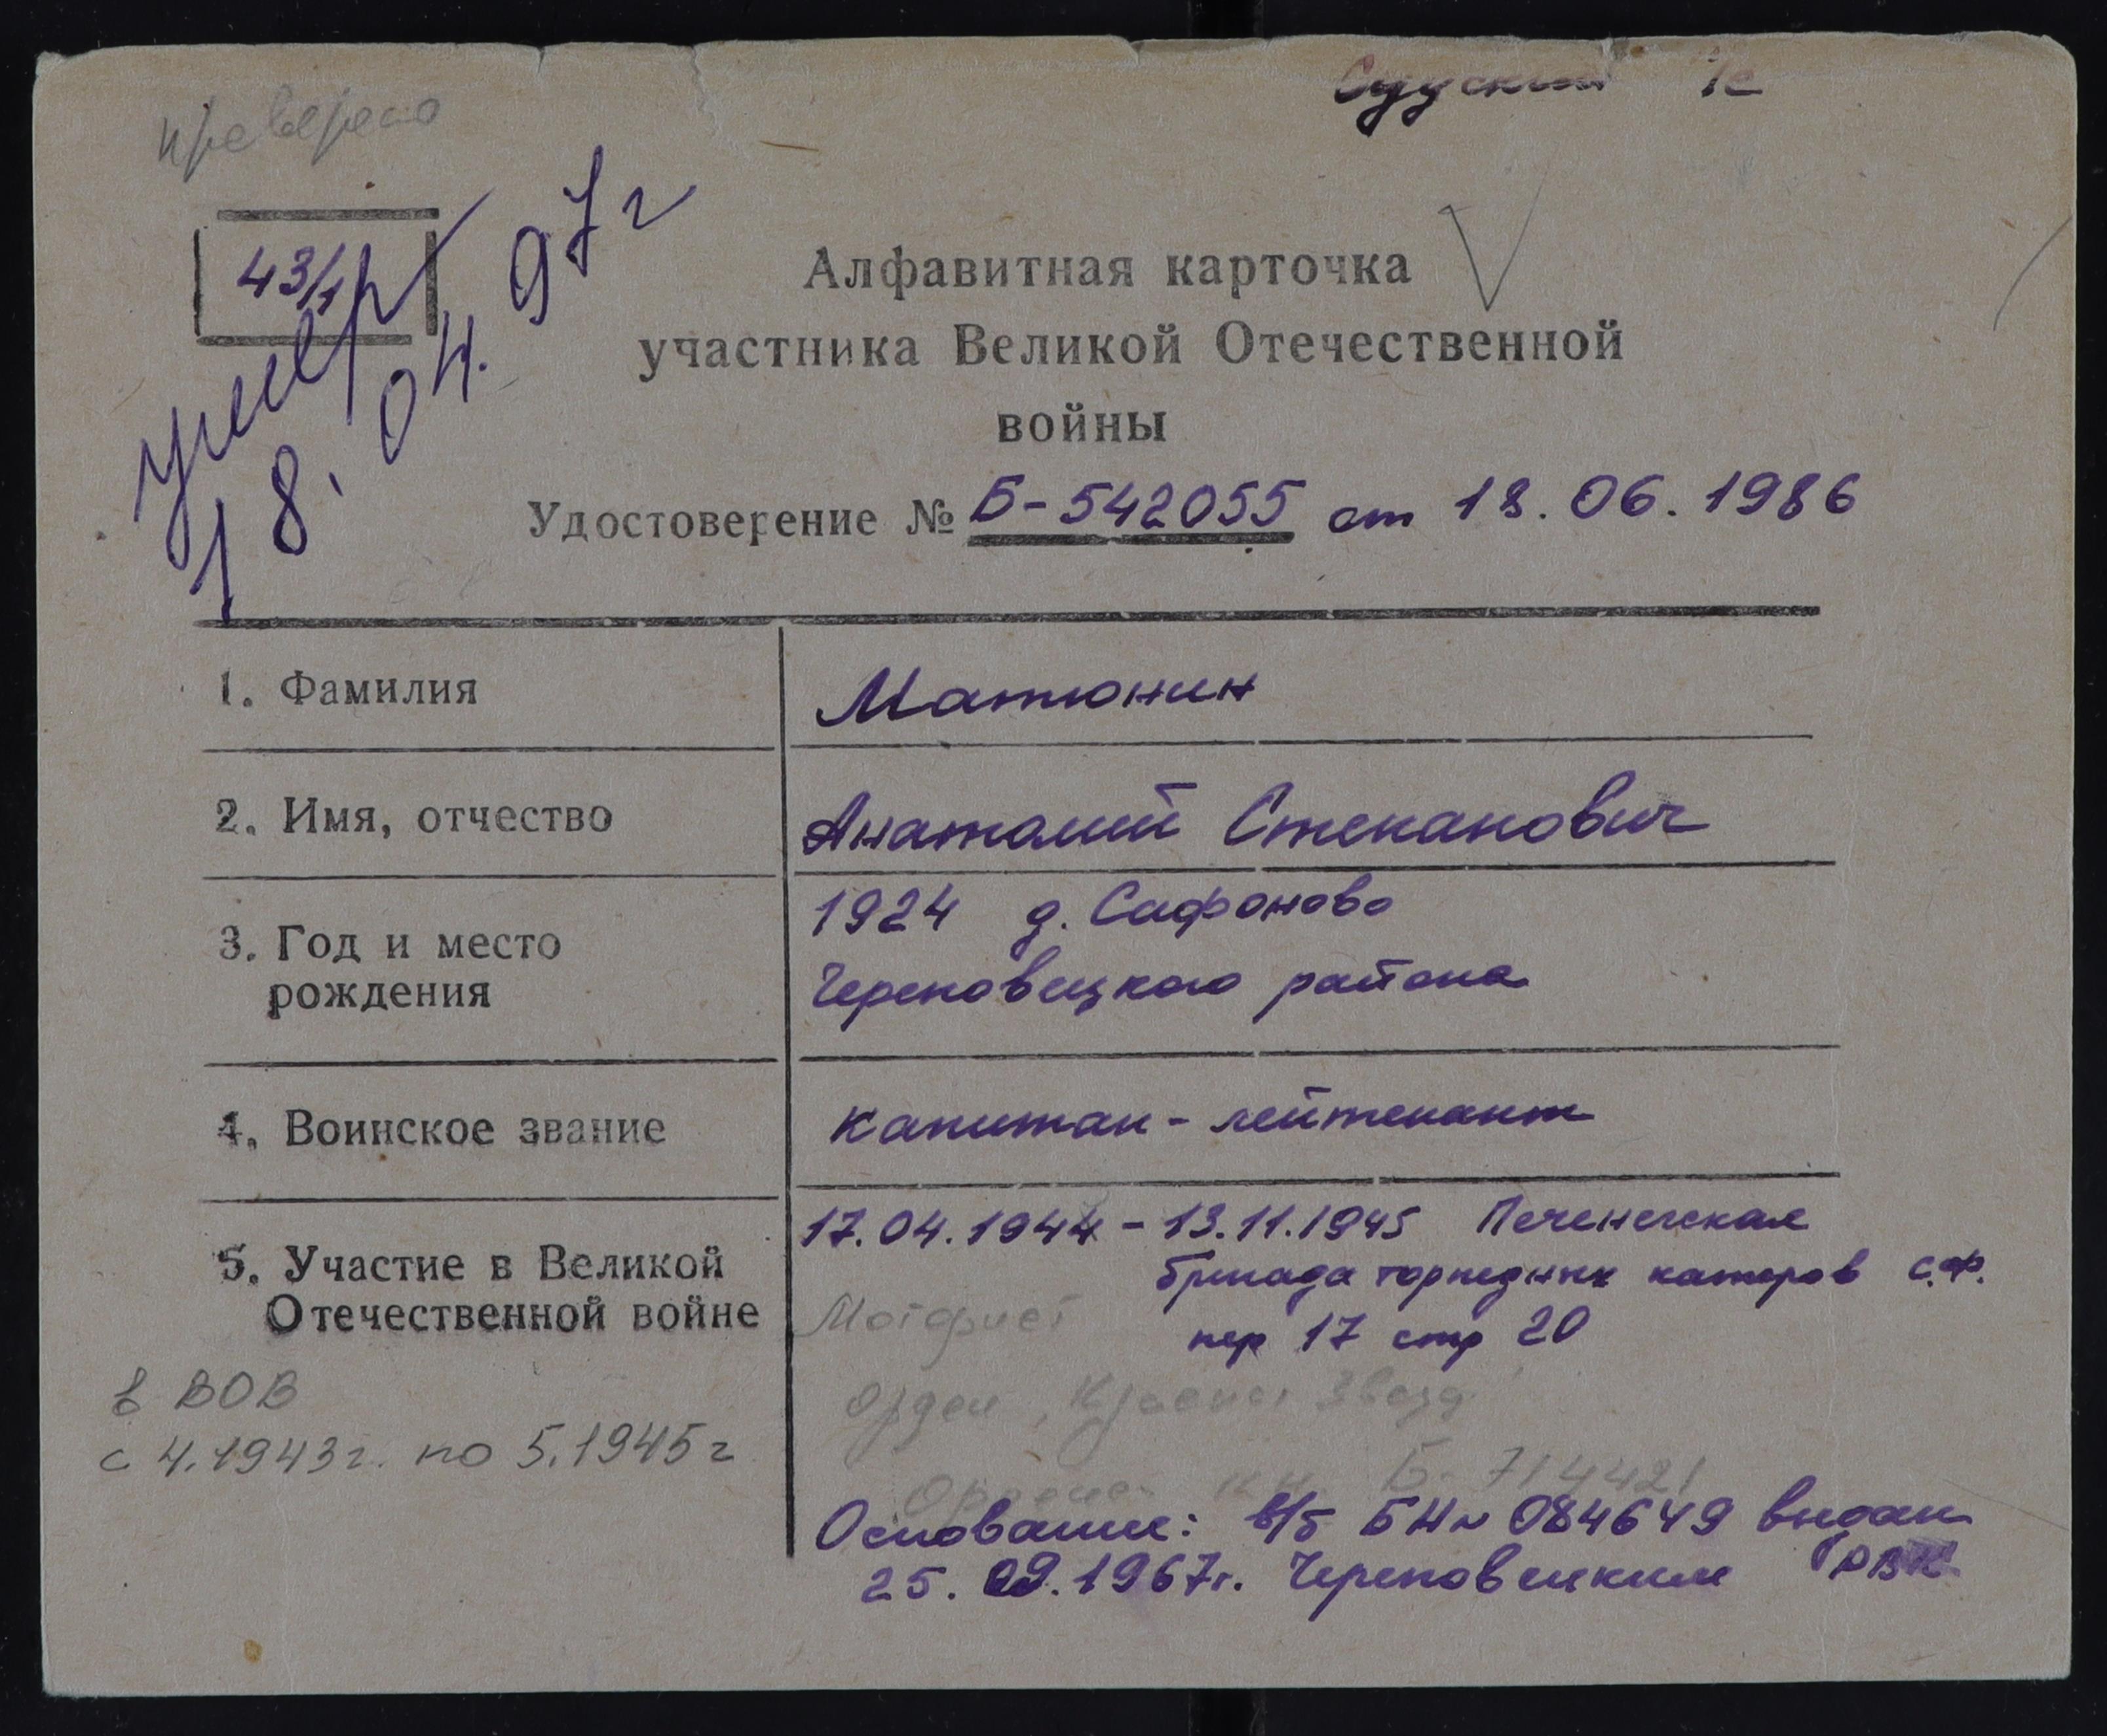 проверено
43/1
умер
18. 04. 97 г
Алфавитная карточка
участника Великой Отечественной
войны
Удостоверение № Б-542055 от 18.06.1986
1. Фамилия
Матюнин
2. Имя, отчество
Анатолий Степанович
3. Год и место
рождения
1924 д. Сафоново
Череповецкого района
4. Воинское звание
капитан-лейтенант
5. Участие в Великой
Отечественной войне
17.04.1944 - 13.11.1945 Печенегская
бригада торпедных катеров с.ф.
пер 17 стр 20
Орден, Красная Звезда
Б-714421
в ВОВ
с 4.1943г. по 5.1945г
Основание: в/б БН № 084649 выдан
25.09.1967г. Череповецким РВК